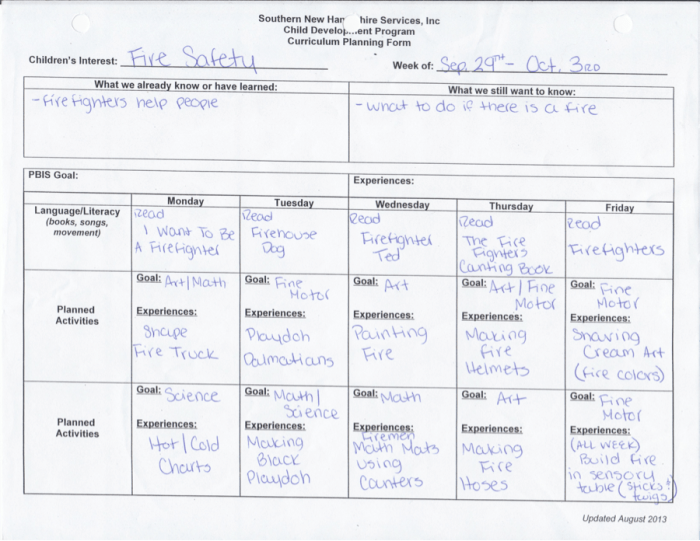 Southern New Hampshire Services, Inc
Child Development Program
Curriculum Planning Form
Children's Interest: Fire Safety
Week of: Sep. 29th - Oct. 3RD
What we already know or have learned:
What we still want to know:
- firefighters help people
- what to do if there is a fire
PBIS Goal:
Experiences:
Monday Tuesday Wednesday Thursday Friday
Language/Literacy
(books, songs,
movement)
Read
I Want To Be
A Firefighter
Read
Firehouse
Dog
Read
Firefighter
Ted
Read
The Fire
Fighters
Counting Book
Read
Firefighters
Planned
Activities
Goal: Art/Math
Experiences:
Shape
Fire Truck
Goal: Fine
Motor
Experiences:
Playdoh
Dalmatians
Goal: Art
Experiences:
Painting
Fire
Goal: Art / Fine
Motor
Experiences:
Making
fire
Helmets
Goal: Fine
Motor
Experiences:
Shaving
Cream Art
(fire colors)
Planned
Activities
Goal: Science
Experiences:
Hot/Cold
Charts
Goal: Math/
Science
Experiences:
Making
Black
Playdoh
Goal: Math
Experiences:
Firemen
Math Mats
using
Counters
Goal: Art
Experiences:
Making
Fire
Hoses
Goal: Fine
Motor
Experiences:
(ALL WEEK)
Build fire
in sensory
table (sticks &
twigs)
Updated August 2013